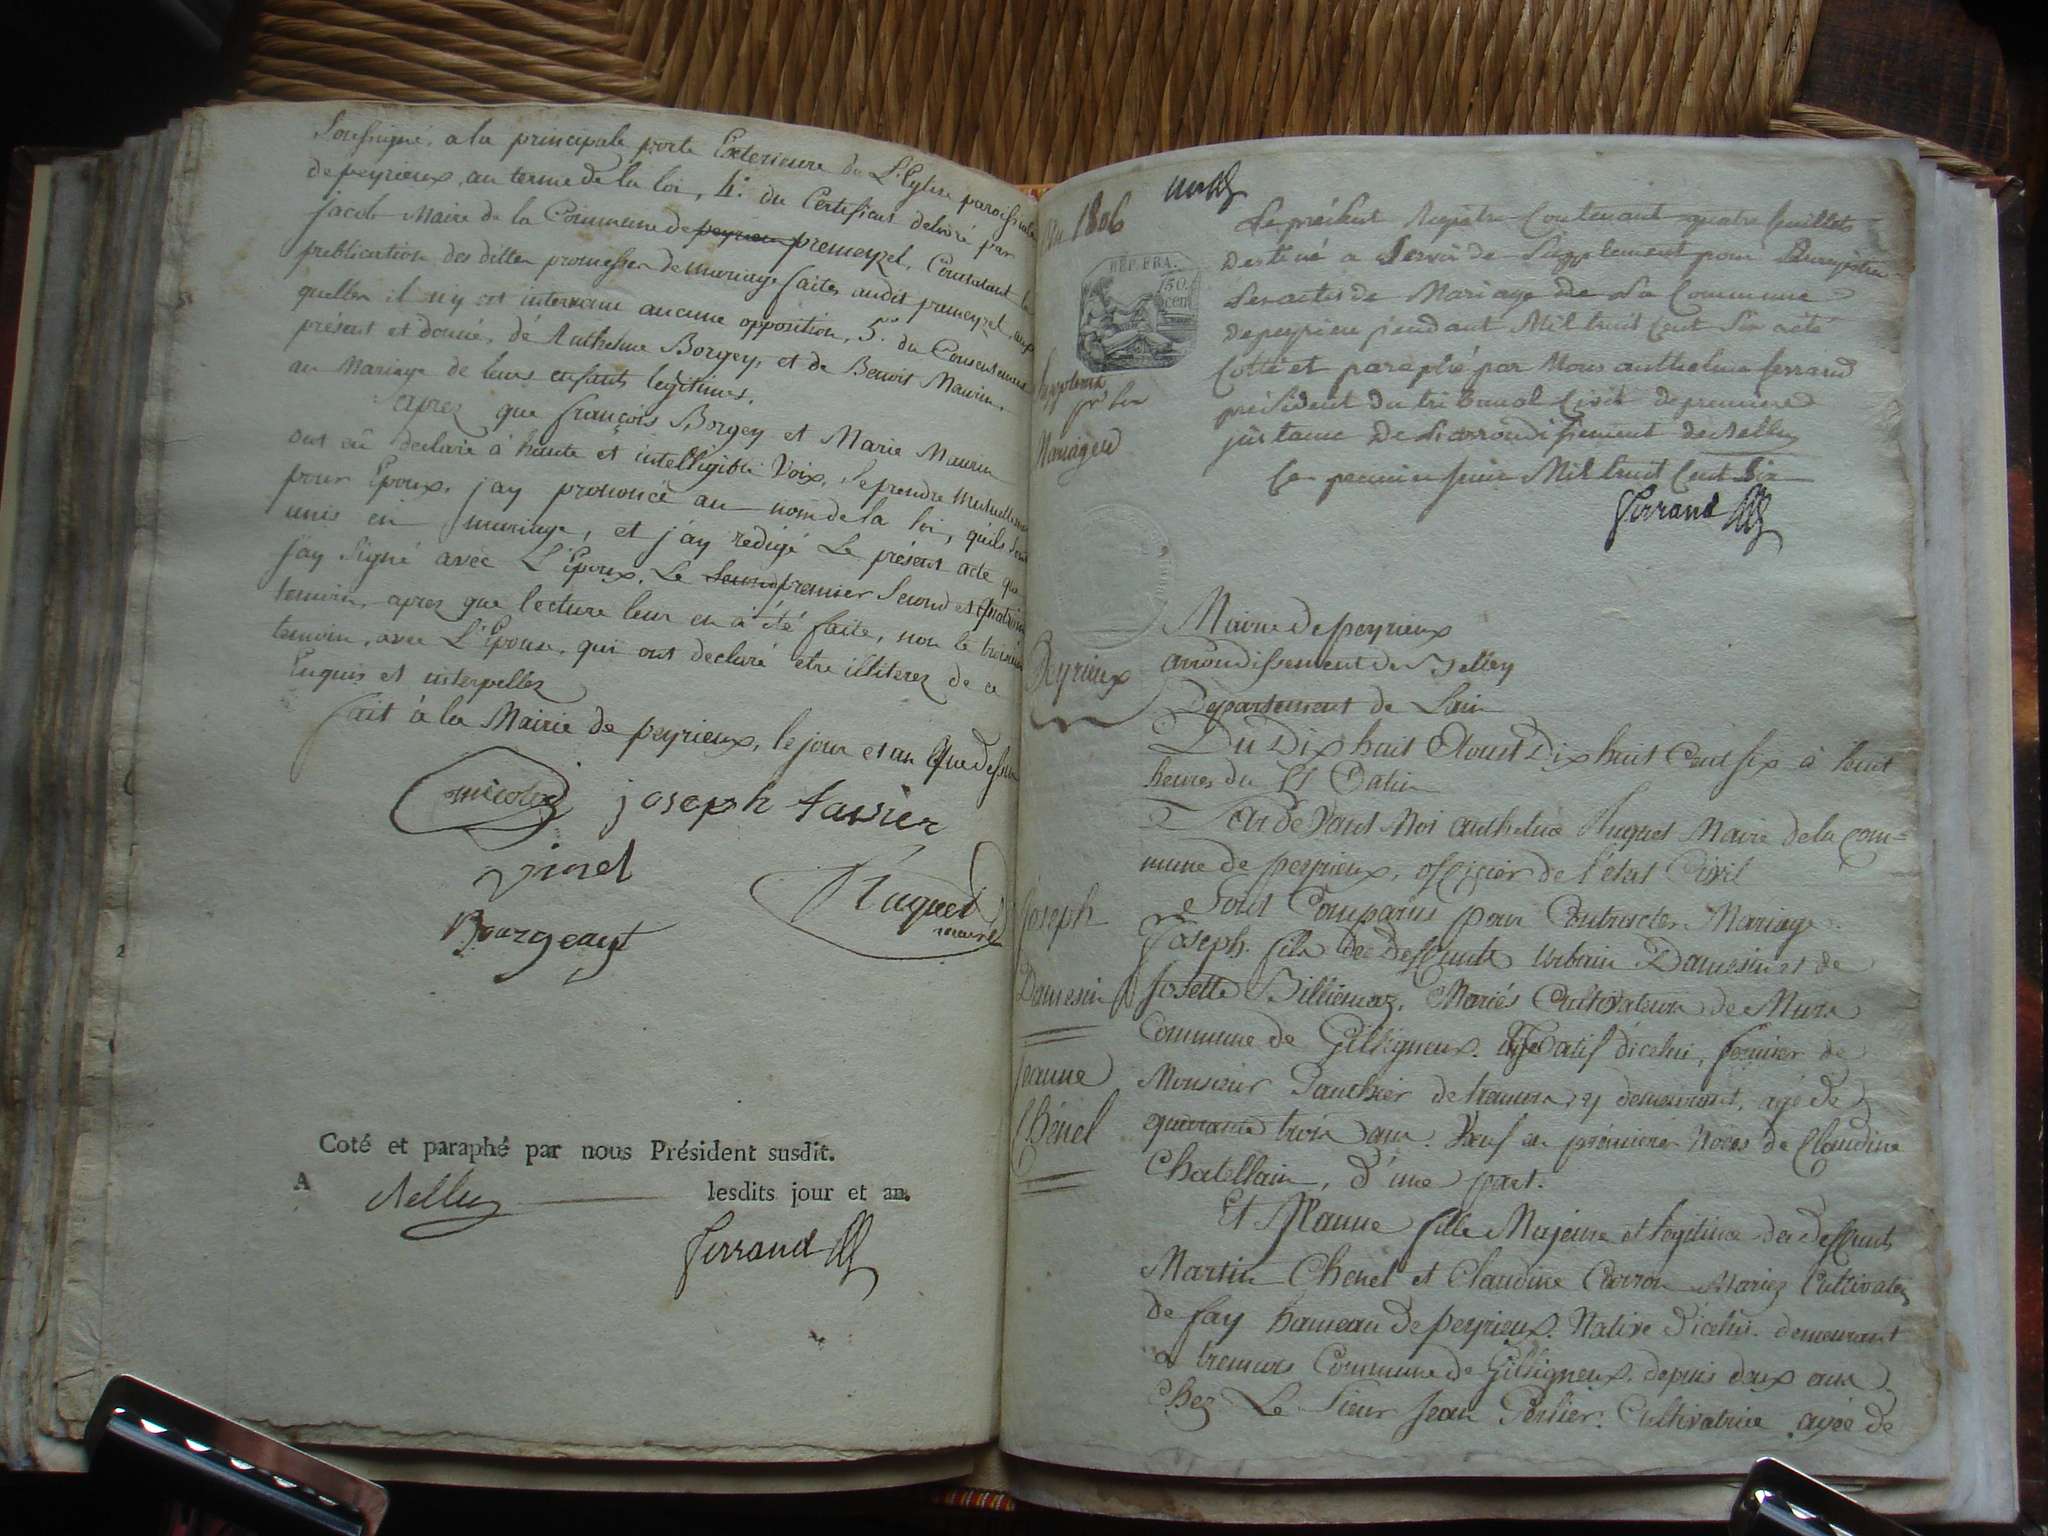 Soussigné, a la principale porte Exterieure de L'Eglise paroissiale
de peyrieux, au terme de la loi, 4.° du Certificat delivré par
jacob Maire de la Commune de peyrieux premeyzel, Constatant la
publication des dittes promesses de mariage faites audit premeyzel, aux
quelles il n'y est intervenu aucune opposition, 5.° du Consentement
présent et donné, de Anthelme Borgey, et de Benoit Maurin,
au Mariage de leurs enfants legitimes.
aprez que françois Borgey et Marie Maurin
ont eû declaré à haute et intelligible Voix, se prendre Mutuellement
pour Epoux, j'ay prononcé au nom de la loi, qu'ils sont
unis en mariage, et j'ay redigé Le présent acte que
j'ay signé avec L'Epoux, Le second premier Second et Quatrieme
temoins, aprez que lecture leur en à été faite, non le troisieme
temoin, avec L'Epouse, qui ont declaré etre illiterez de ce
Enquis et interpellez
fait à la Mairie de peyrieux, le jour et an Que dessus
joseph tavier
vinel
Huguet
maire
Bourgeaud
2
Coté et paraphé par nous Président susdit.
A Belley lesdits jour et an.
Ferrand
An 1806
REP. FRA.
50
cent
Le présent Registre Contenant quatre feuillets
Destiné a Servir de Supplement pour
Les actes de Mariage de La Commune
de peyrieu pendant Mil huit Cent Six a été
Cotté et paraphé par Nous anthelme ferrand
président du tribunal Civil de premiere
jnstance De L'arrondissement de Belley
Ce premier juin Mil huit Cent Six
Ferrand
Mariages
Mairie de peyrieux
arrondissement de Belley
Peyrieux
Departement de Lain
Du Dix huit Aoust Dix huit Cent Six à huit
heures du Matin
Par de Vant Moi anthelme Huguet Maire de la com=
mune de peyrieux, officier de l'état Civil
Sont Comparus pour Contracter Mariage
Joseph
Damesin
Jeanne
Chénel
Joseph fils de Deffunts Urbain Damesin et de
Josette Billiemaz, Mariés Cultivateurs de Murs
Commune de Gelligneux. Natif d'icelui, fermier de
Monsieur Gauthier de tremurs, y demeurant, agé de
quarante trois ans. Veuf en premieres Noces de Claudine
Chatellain, d'une part.
Et Jeanne fille Majeure et legitime des deffunts
Martin Chenel et Claudine Carron Mariez Cultivateurs
de fay hameau de peyrieux. Native d'icelui. demeurant
a tremurs Commune de Gelligneux, depuis deux ans
Chez Le Sieur Jean Perlier. Cultivatrice agée de